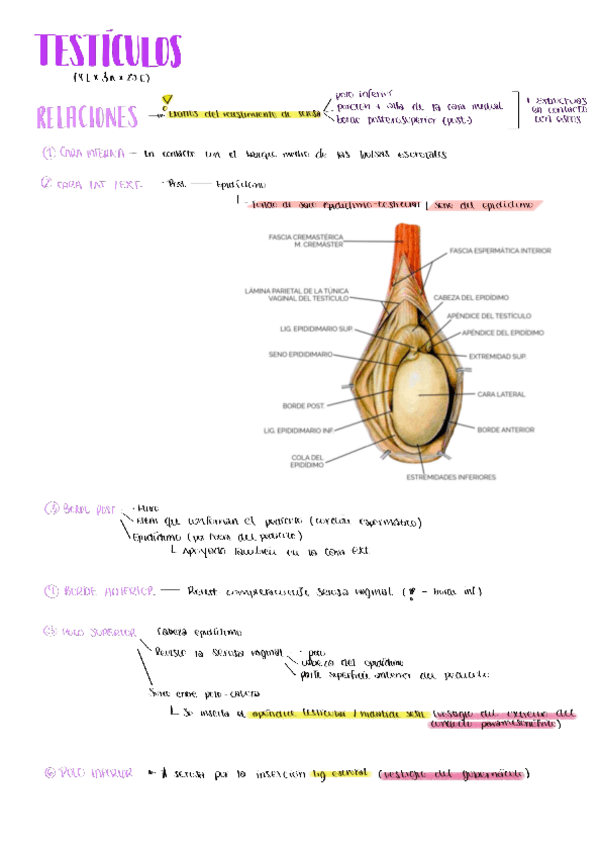 TESTÍCULOS
RELACIONES → Exentos del revestimiento de serosa
polo inferior
porción + alta de la cara medial
borde posterosuperior (post.)
estructuras en contacto con estos
① CARA INTERNA — En contacto con el tabique medio de las bolsas escrotales
② CARA LAT / EXT. - Post. — Epidídimo
fondo de saco epidídimo-testicular | seno del epidídimo
FASCIA CREMASTÉRICA
M. CREMÁSTER
FASCIA ESPERMÁTICA INTERIOR
LÁMINA PARIETAL DE LA TÚNICA
VAGINAL DEL TESTÍCULO
CABEZA DEL EPIDÍDIMO
APÉNDICE DEL TESTÍCULO
LIG. EPIDIDIMARIO SUP.
APÉNDICE DEL EPIDÍDIMO
SENO EPIDIDIMARIO
EXTREMIDAD SUP.
CARA LATERAL
BORDE POST.
LIG. EPIDIDIMARIO INF.
BORDE ANTERIOR
COLA DEL
EPIDÍDIMO
ESTREMIDADES INFERIORES
③ BORDE POST. - Hilio
que conforman el pedículo (cordón espermático)
Epidídimo (por fuera del pedículo)
Apoyado también en la cara ext
④ BORDE ANTERIOR — Revest. completamente serosa vaginal
⑤ POLO SUPERIOR cabeza epidídimo
Reviste la serosa vaginal - polo
cabeza del epidídimo
parte superficie anterior del pedículo
Surco entre polo-cabeza
Se inserta el apéndice testicular / (vestigio del extremo del
conducto paramesonéfrico)
⑥ POLO INFERIOR serosa por la inserción lig escrotal (vestigio del gubernáculo)